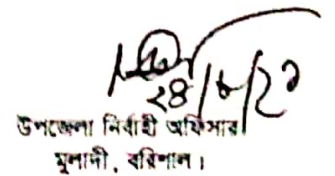 ২৪/৮/২১
উপজেলা নির্বাহী অফিসার
মুলাদী, বরিশাল।